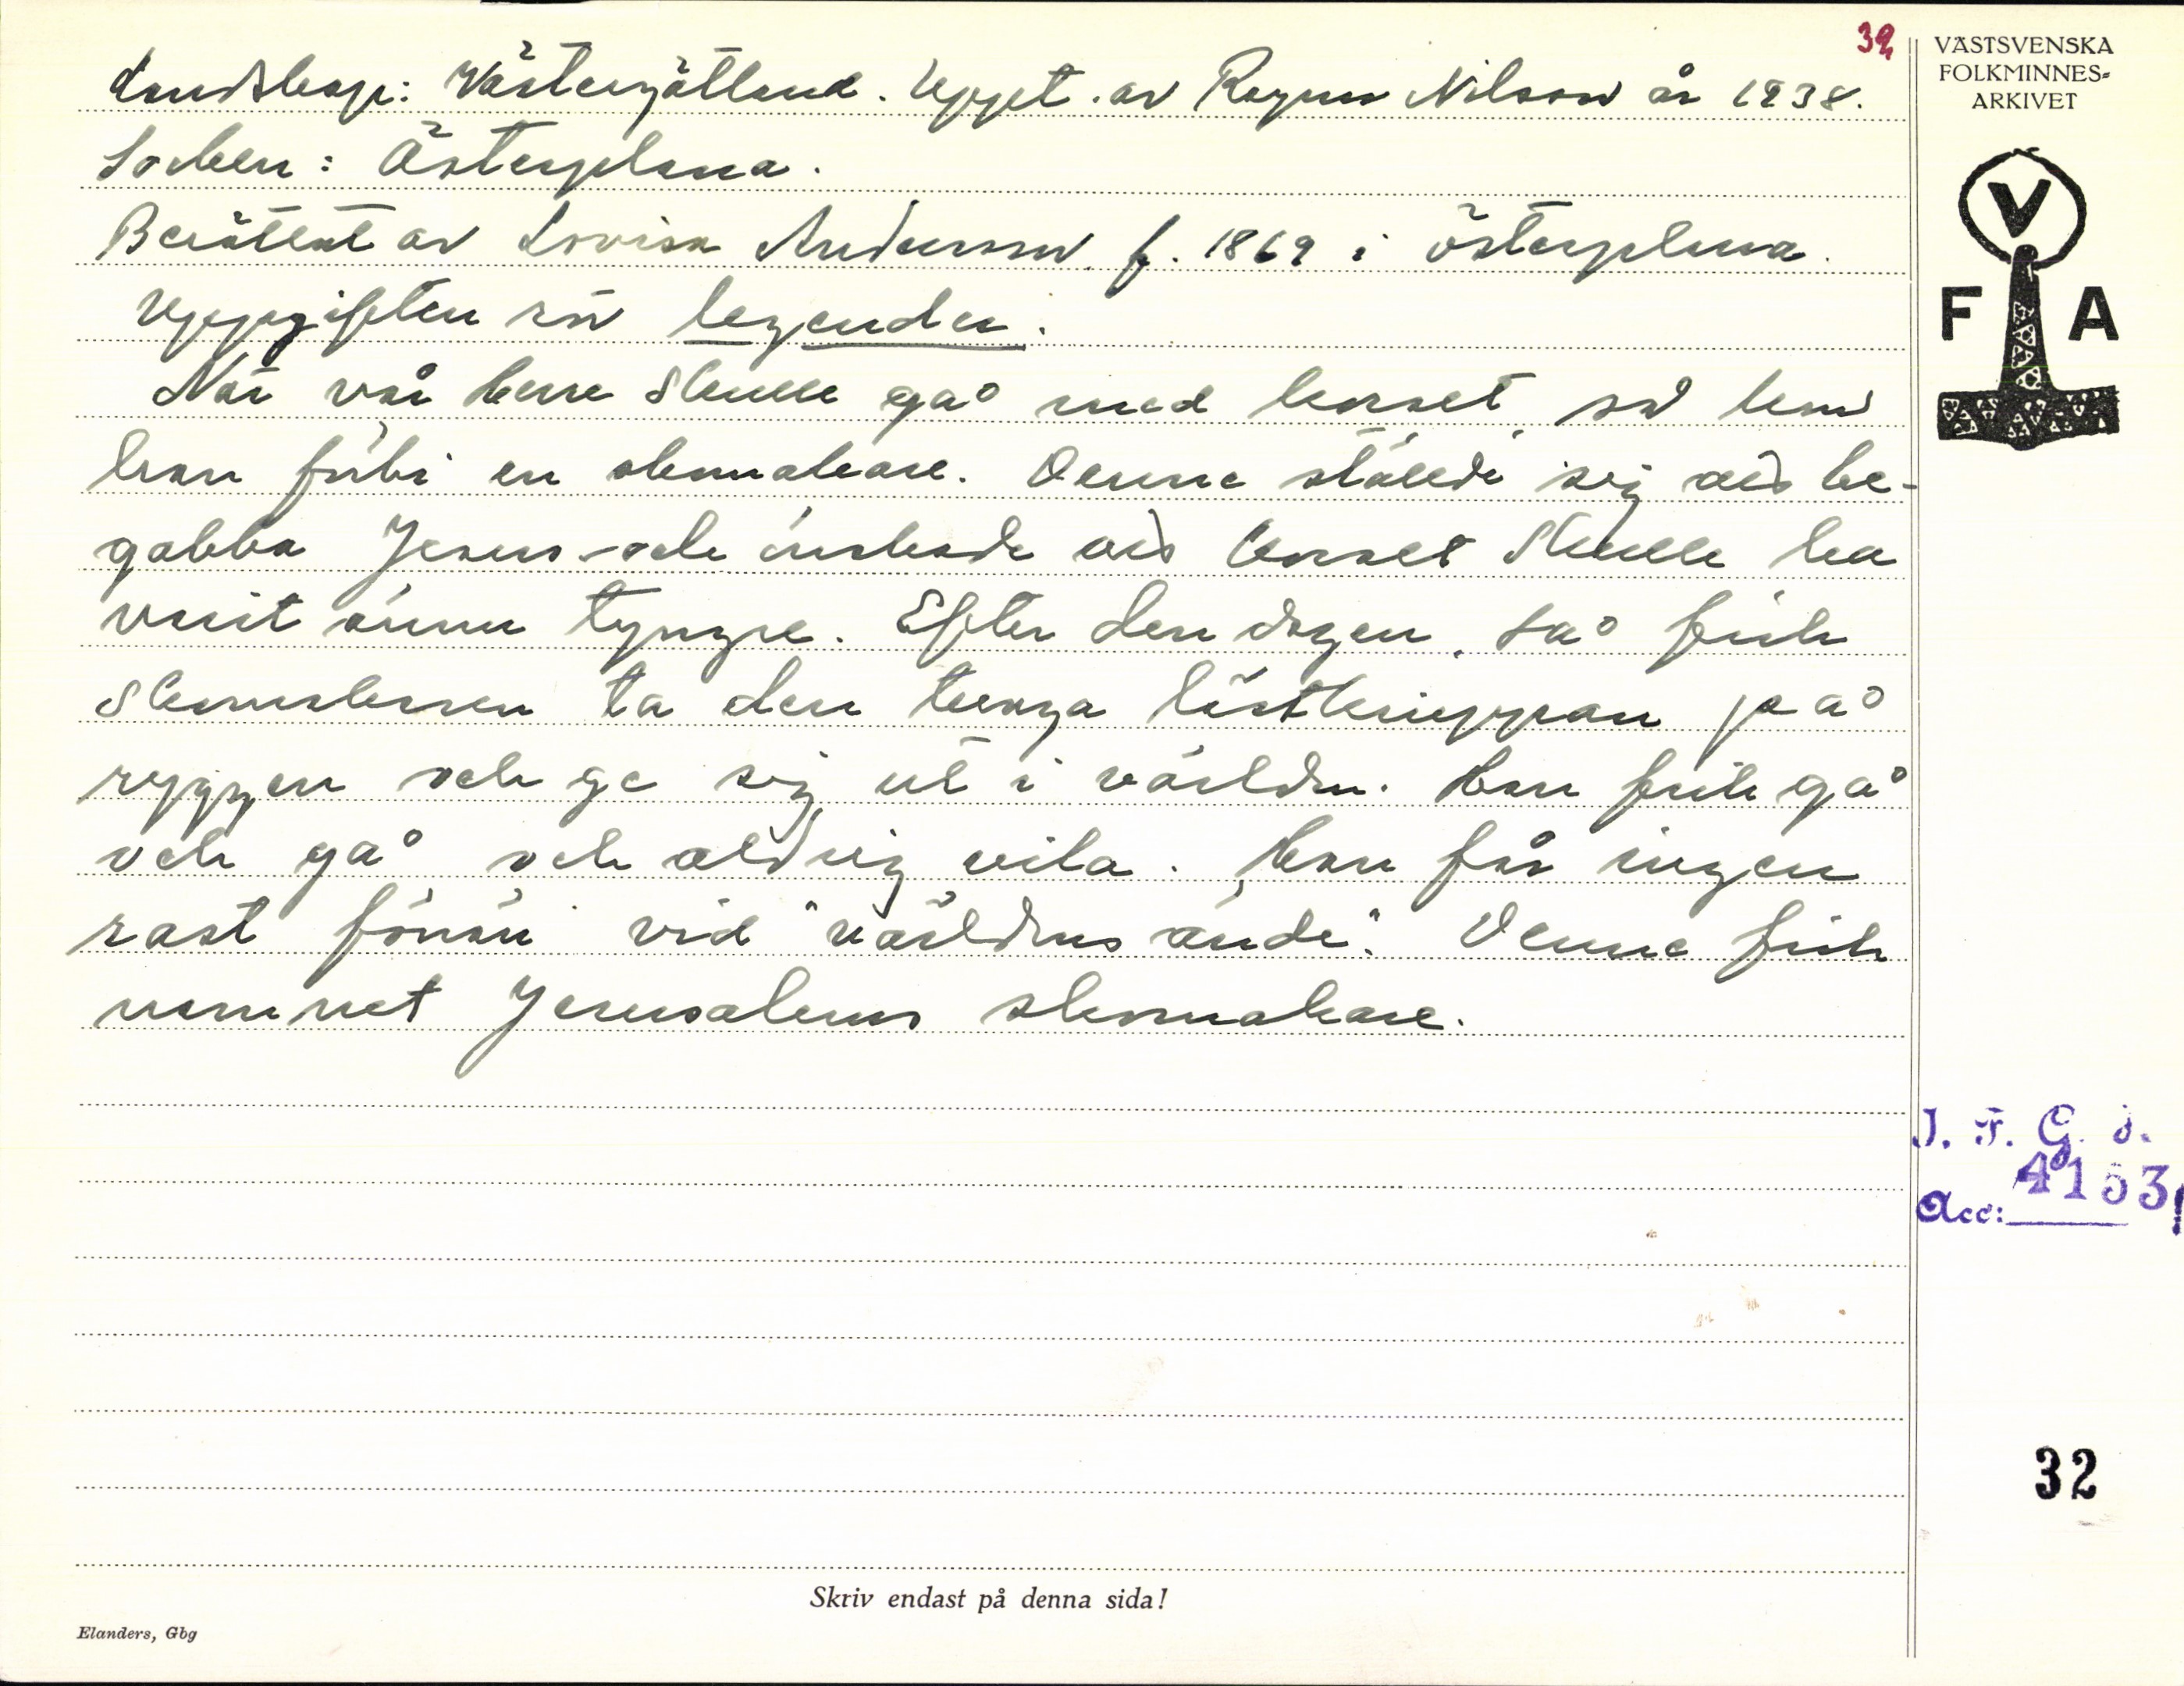 32
Landskap: Västergötland. Uppt. av Ragnar Nilsson år 1938.
Socken: Österplana.
Berättat av Lovisa Andersson f. 1869 i Österplana.
Uppgiften rör legender.
När vår herre skulle gå med korset så kom
han förbi en skomakare. Denne ställde sig att be-
gabba Jesus och önskade att korset skulle ha
varit ännu tyngre. Efter den dagen så fick
skomakaren ta den tunga lästknippan på
ryggen och ge sig ut i världen. Han fick gå
och gå och aldrig vila. Han får ingen
rast förrän vid "världens ände". Denne fick
namnet Jerusalems skomakare.
Skriv endast på denna sida!
Elanders, Gbg
VÄSTSVENSKA
FOLKMINNES-
ARKIVET
V
F A
I. F. G. H.
Acc: 4153
32